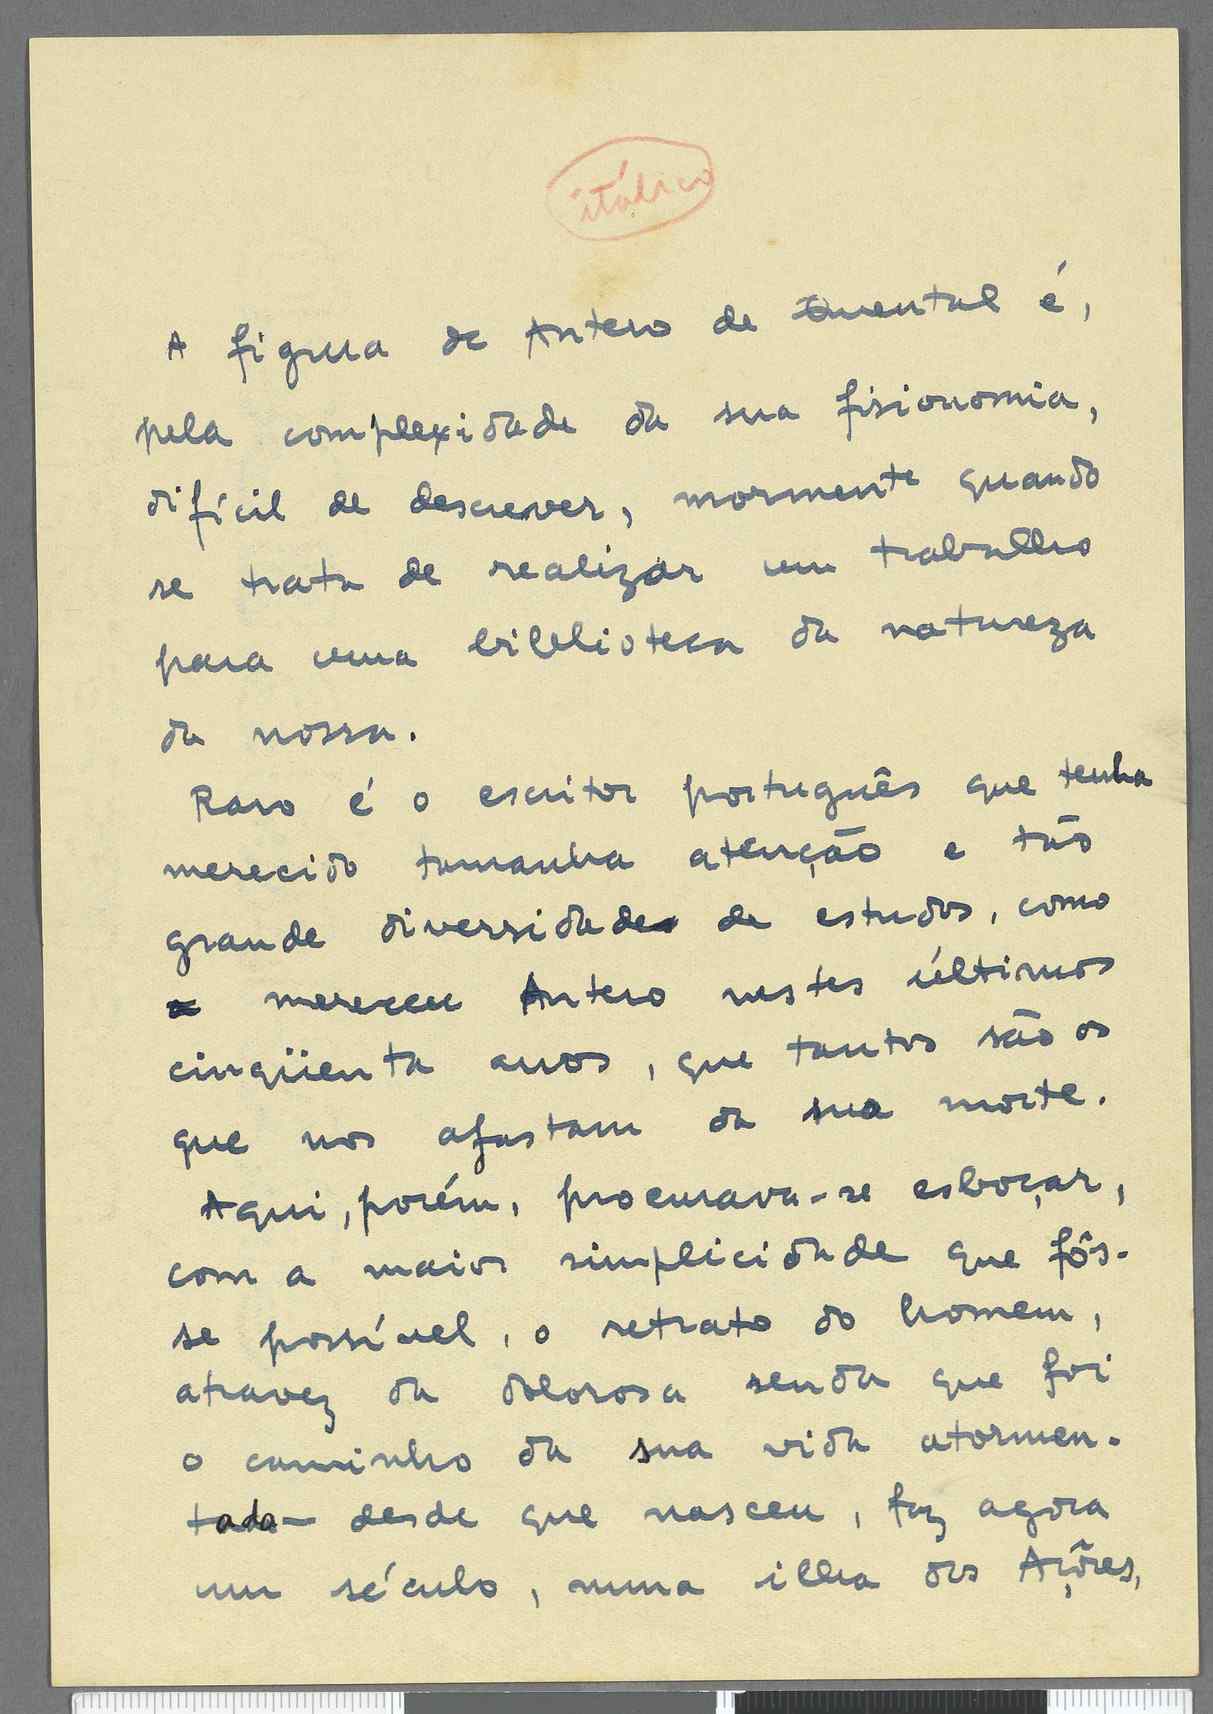 itálico
A figura de Antero de Quental é,
pela complexidade da sua fisionomia,
difícil de descrever, mormente quando
se trata de realizar um trabalho
para uma biblioteca da natureza
da nossa.
Raro é o escritor português que tenha
merecido tamanha atenção e tão
grande diversidade de estudos, como
mereceu Antero nestes últimos
cinqüenta anos, que tantos são os
que nos afastam da sua morte.
Aqui, porém, procurava-se esboçar,
com a maior simplicidade que fôs-
se possível, o retrato do homem,
atravez da dolorosa senda que foi
o caminho da sua vida atormen-
tada— desde que nasceu, faz agora
um século, numa ilha dos Açôres,